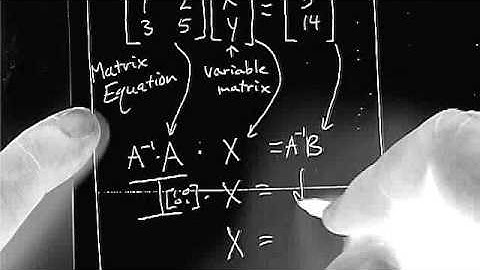 3 5 y = 14
Matrix Equation
variable matrix
A⁻¹·A · X = A⁻¹B
[1 0 0 1] · X =
X =